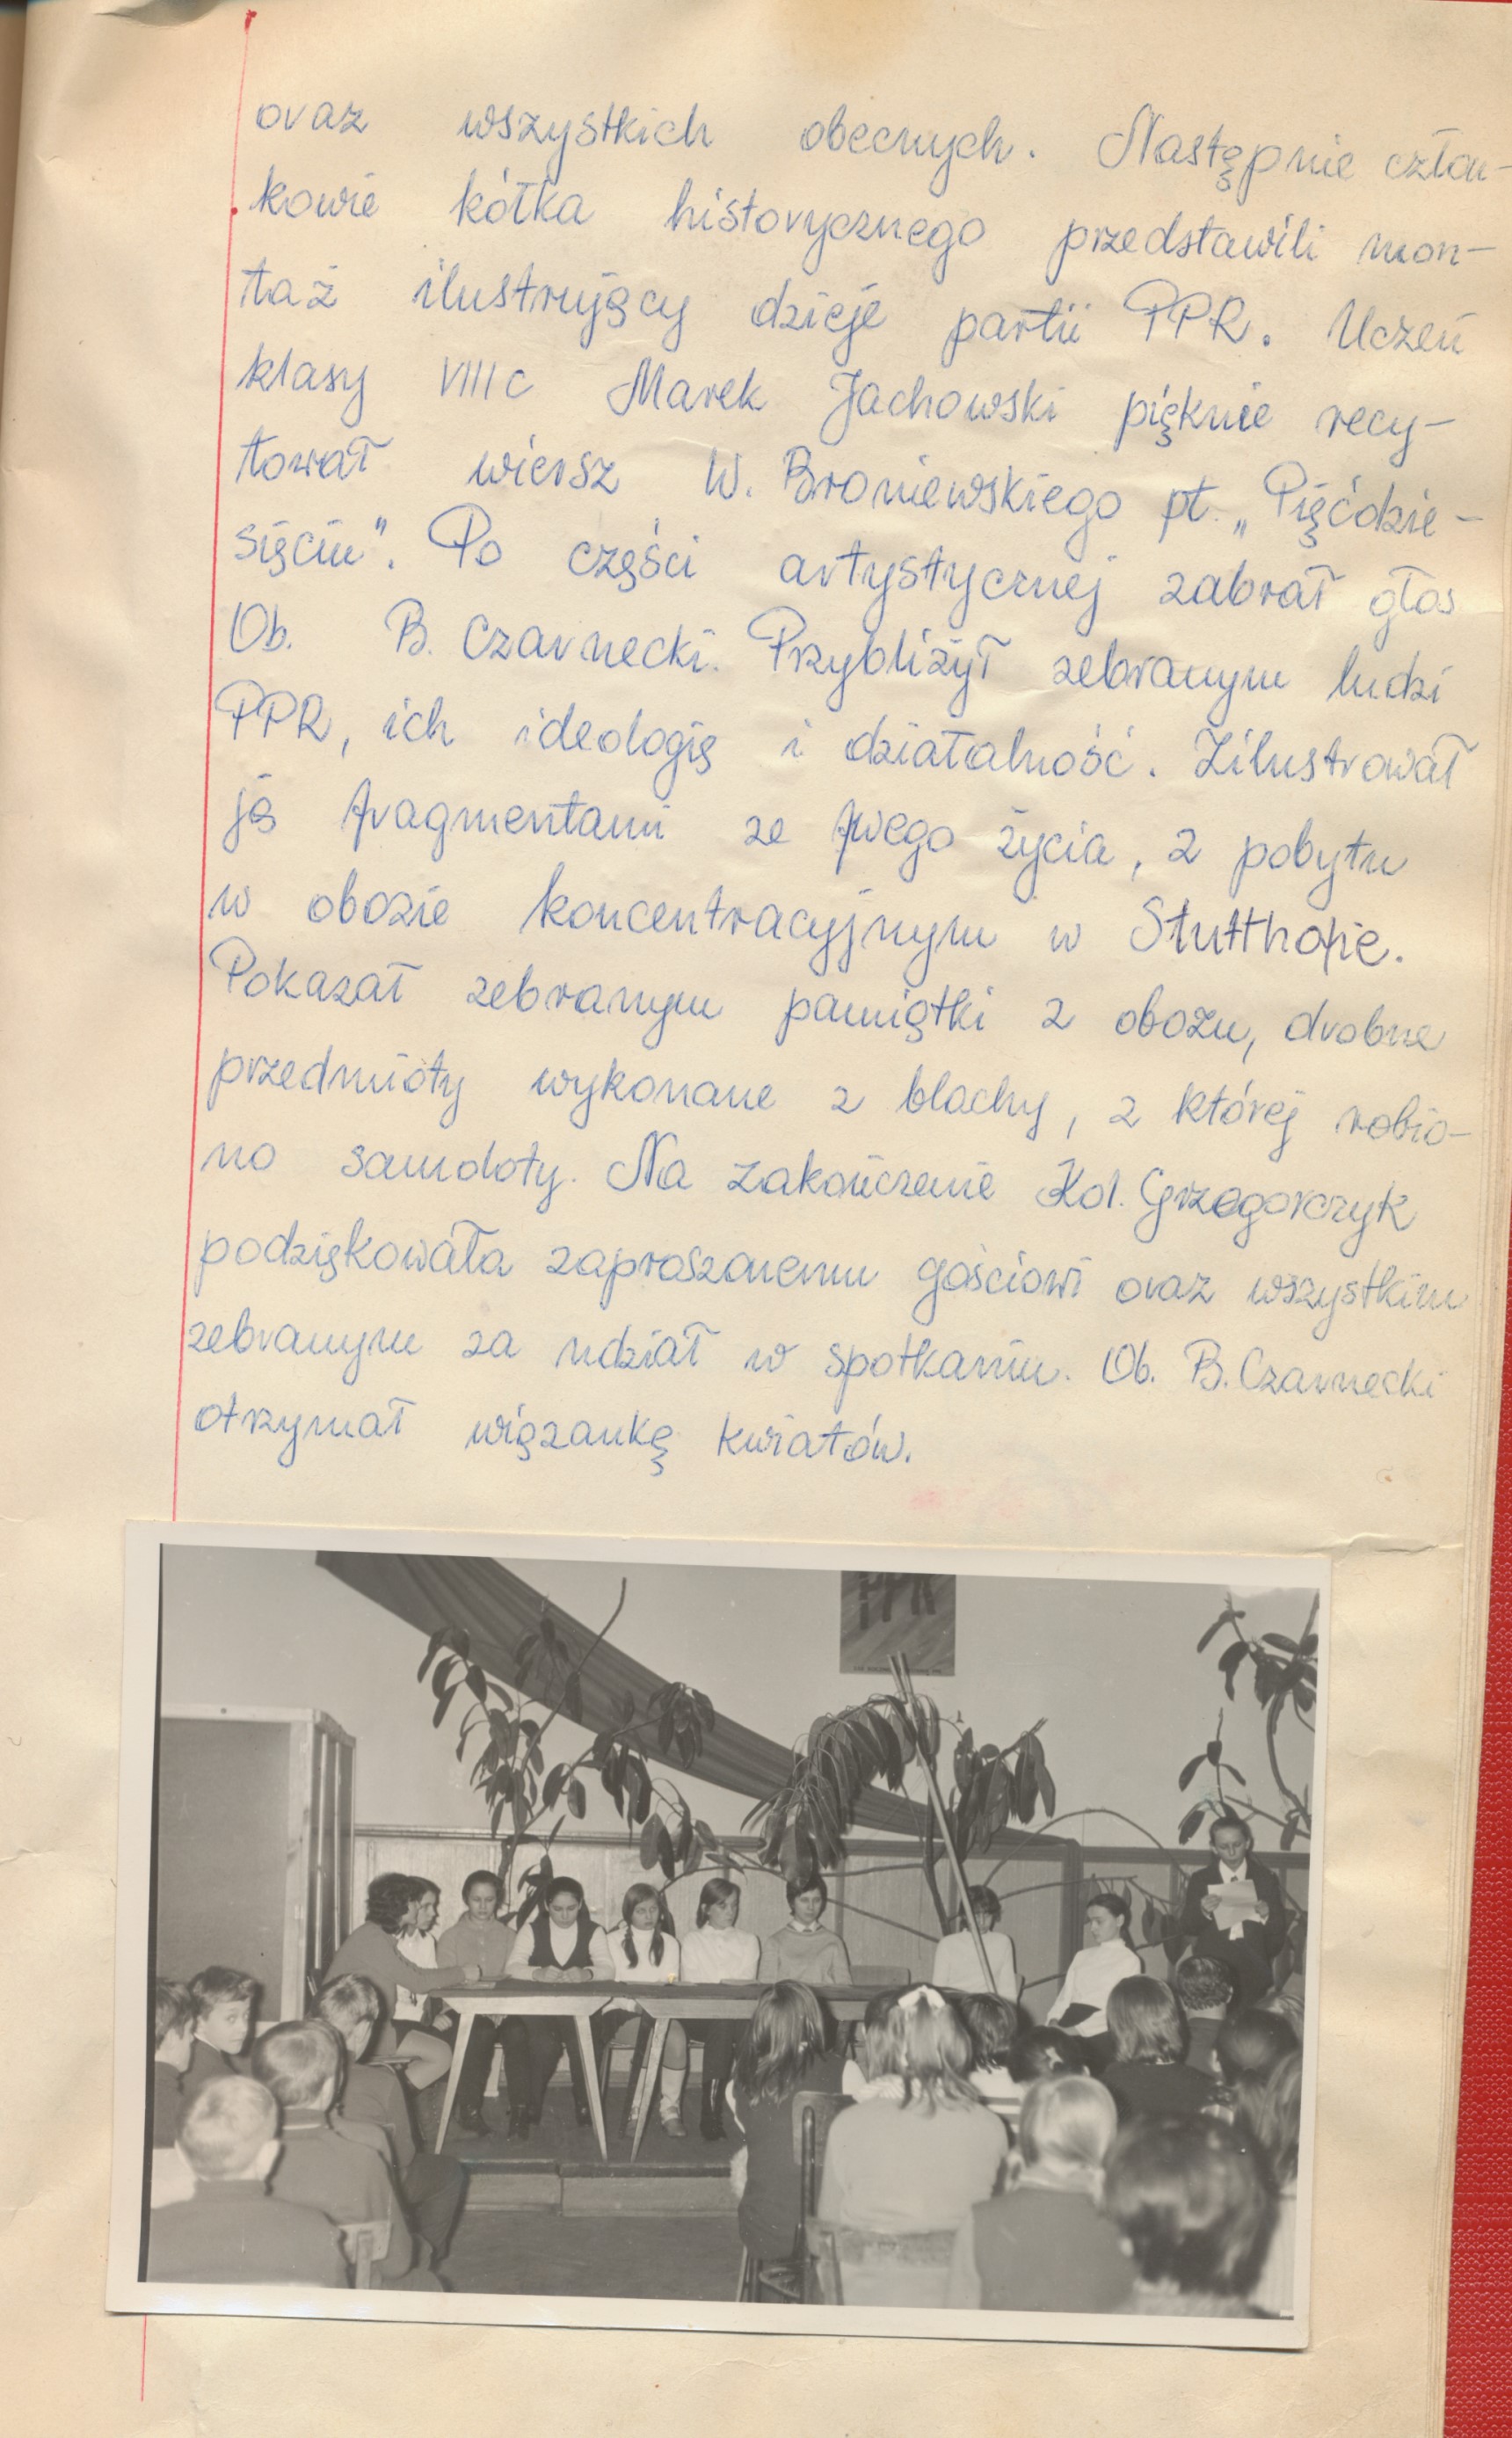 oraz wszystkich obecnych. Następnie człon-
kowie kółka historycznego przedstawili mon-
taż ilustrujący dzieje partii PPR. Uczeń
klasy VIII c Marek Jachowski pięknie recy-
tował wiersz W. Broniewskiego pt. „Pięćdzie-
sięciu”. Po części artystycznej zabrał głos
Ob. B. Czarnecki. Przybliżył zebranym ludzi
PPR, ich ideologię i działalność. Zilustrował
ją fragmentami ze swego życia, z pobytu
w obozie koncentracyjnym w Stutthofie.
Pokazał zebranym pamiątki z obozu, drobne
przedmioty wykonane z blachy, z której robio-
no samoloty. Na zakończenie Kol. Grzegorczyk
podziękowała zaproszonemu gościowi oraz wszystkim
zebranym za udział w spotkaniu. Ob. B. Czarnecki
otrzymał wiązankę kwiatów.
PPR